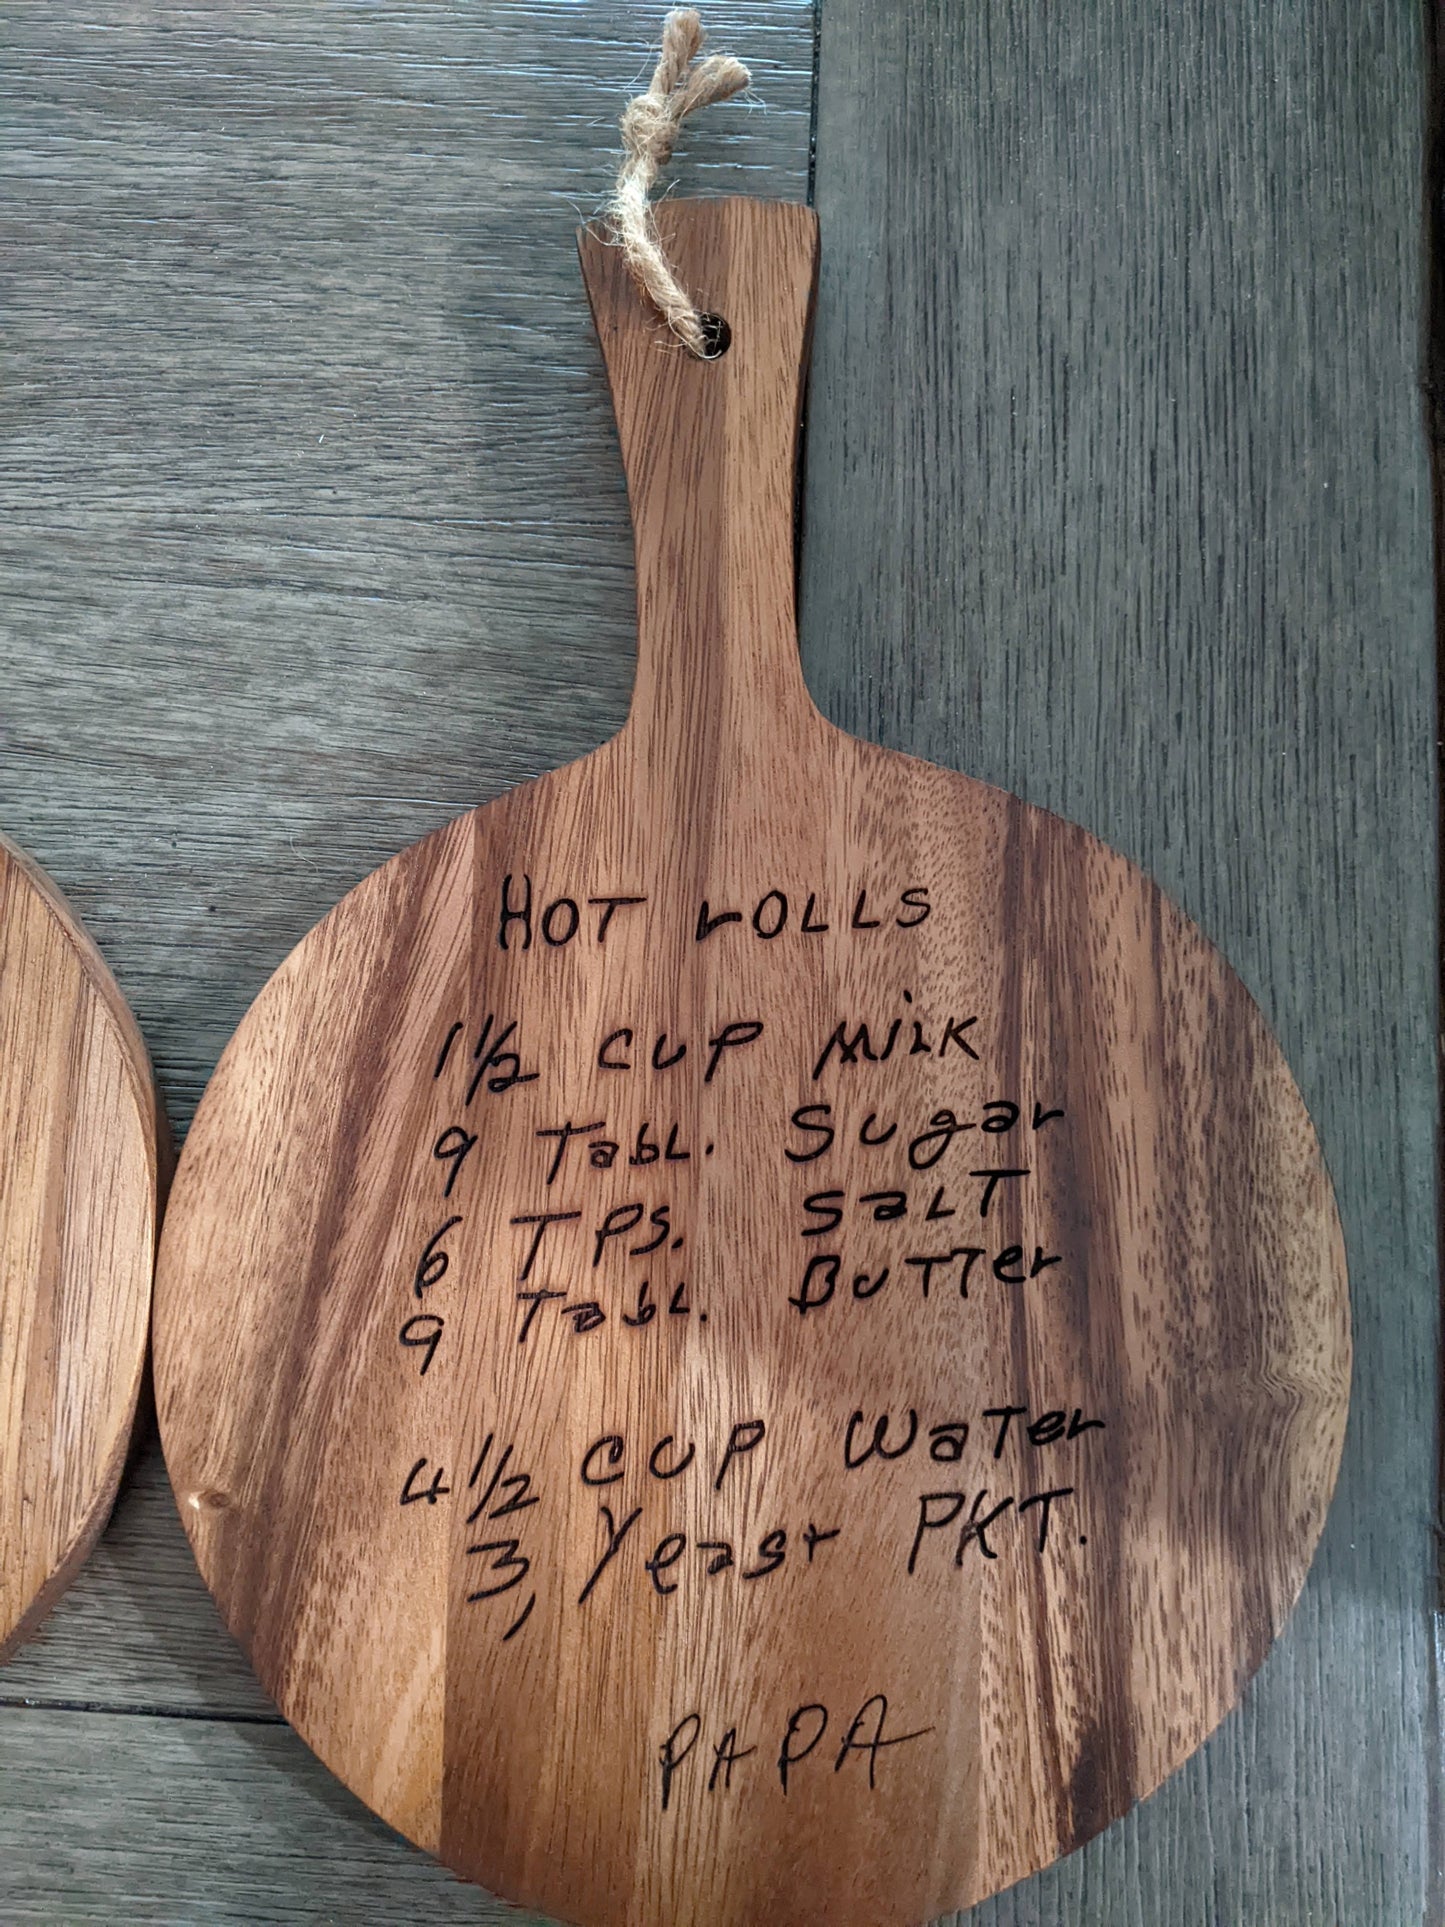 HOT rOLLS
1 1/2 CUP MiLK
9 TabL. Sugar
6 TPS. SaLT
9 TabL. BuTTer
4 1/2 CUP WaTer
3, Yeast PKT.
PAPA